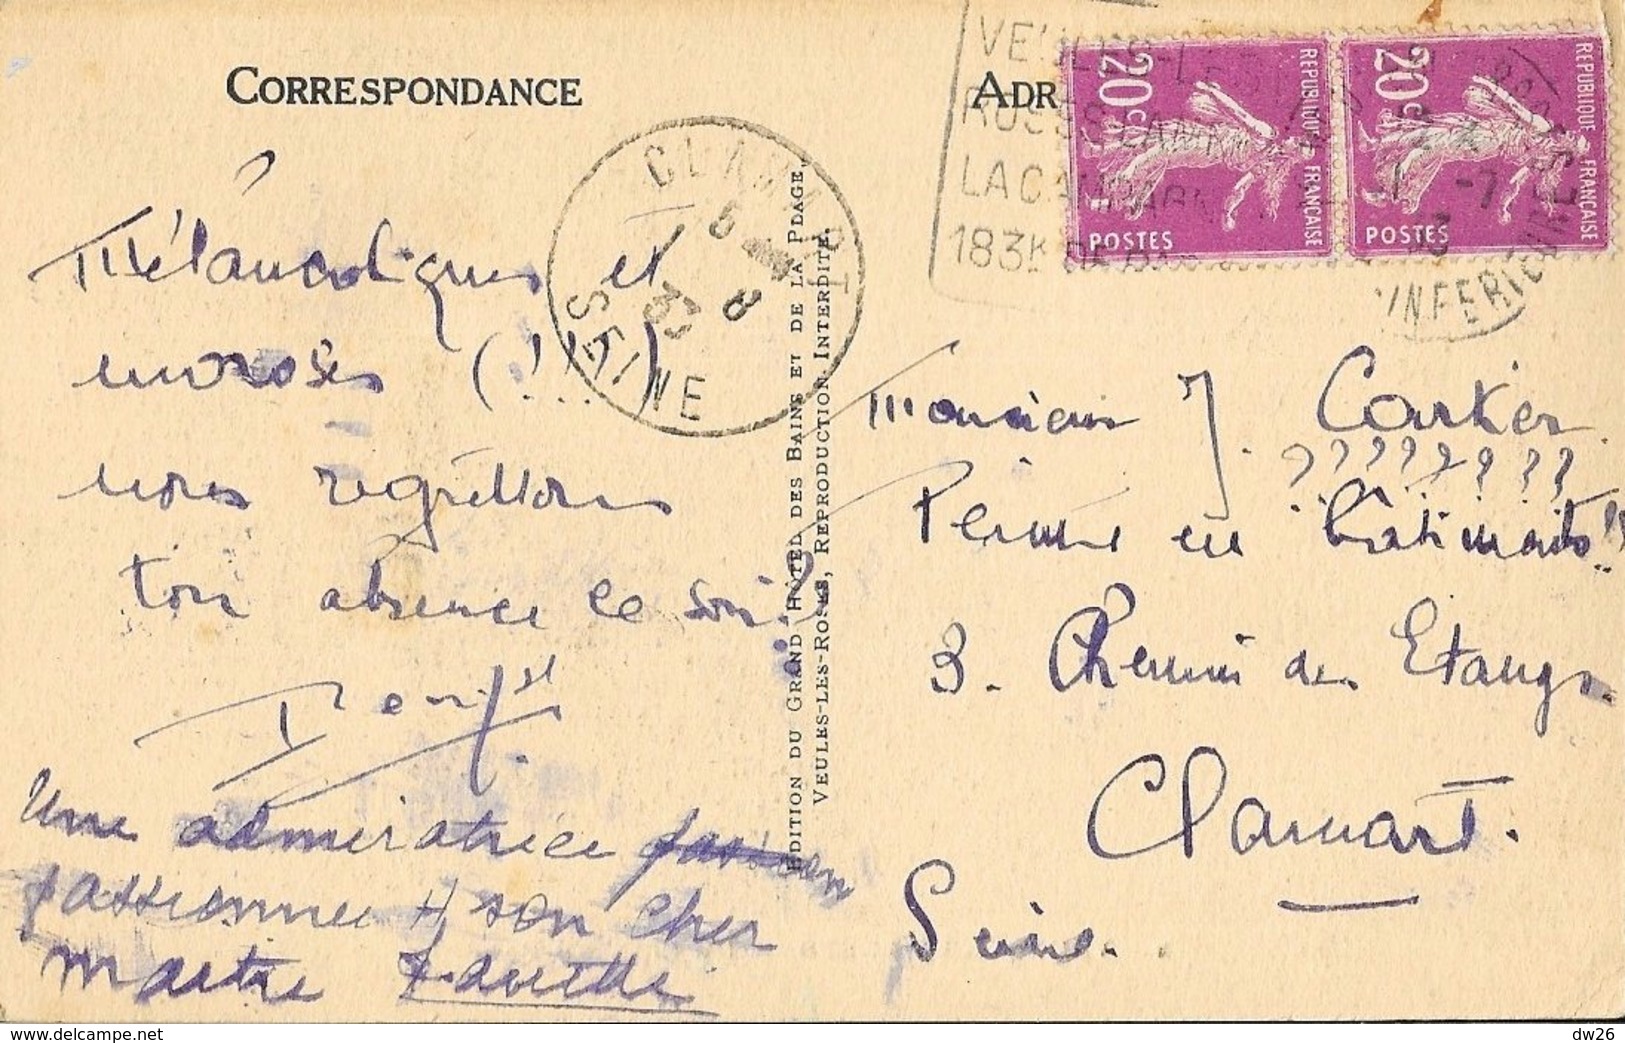 CORRESPONDANCE
Mélancoliques et
moroses (!!!)
nous regrettons
ton absence ce soir!
Une admiratrice
passionnée à son cher
maître
EDITION DU GRAND HÔTEL DES BAINS ET DE LA PLAGE,
VEULES-LES-ROSES, REPRODUCTION INTERDITE.
CLAMART
5
8
33
SEINE
ADR
VEULES-LES
ROSES
LA CAMPAGN
183K DE
20c
POSTES
REPUBLIQUE FRANÇAISE
20c
POSTES
REPUBLIQUE FRANÇAISE
-7
INFERIEURE
Monsieur J. Cartier
????????
Peintre en bâtiments!!
3. Chemin des Etangs.
Clamart.
Seine.
dw26